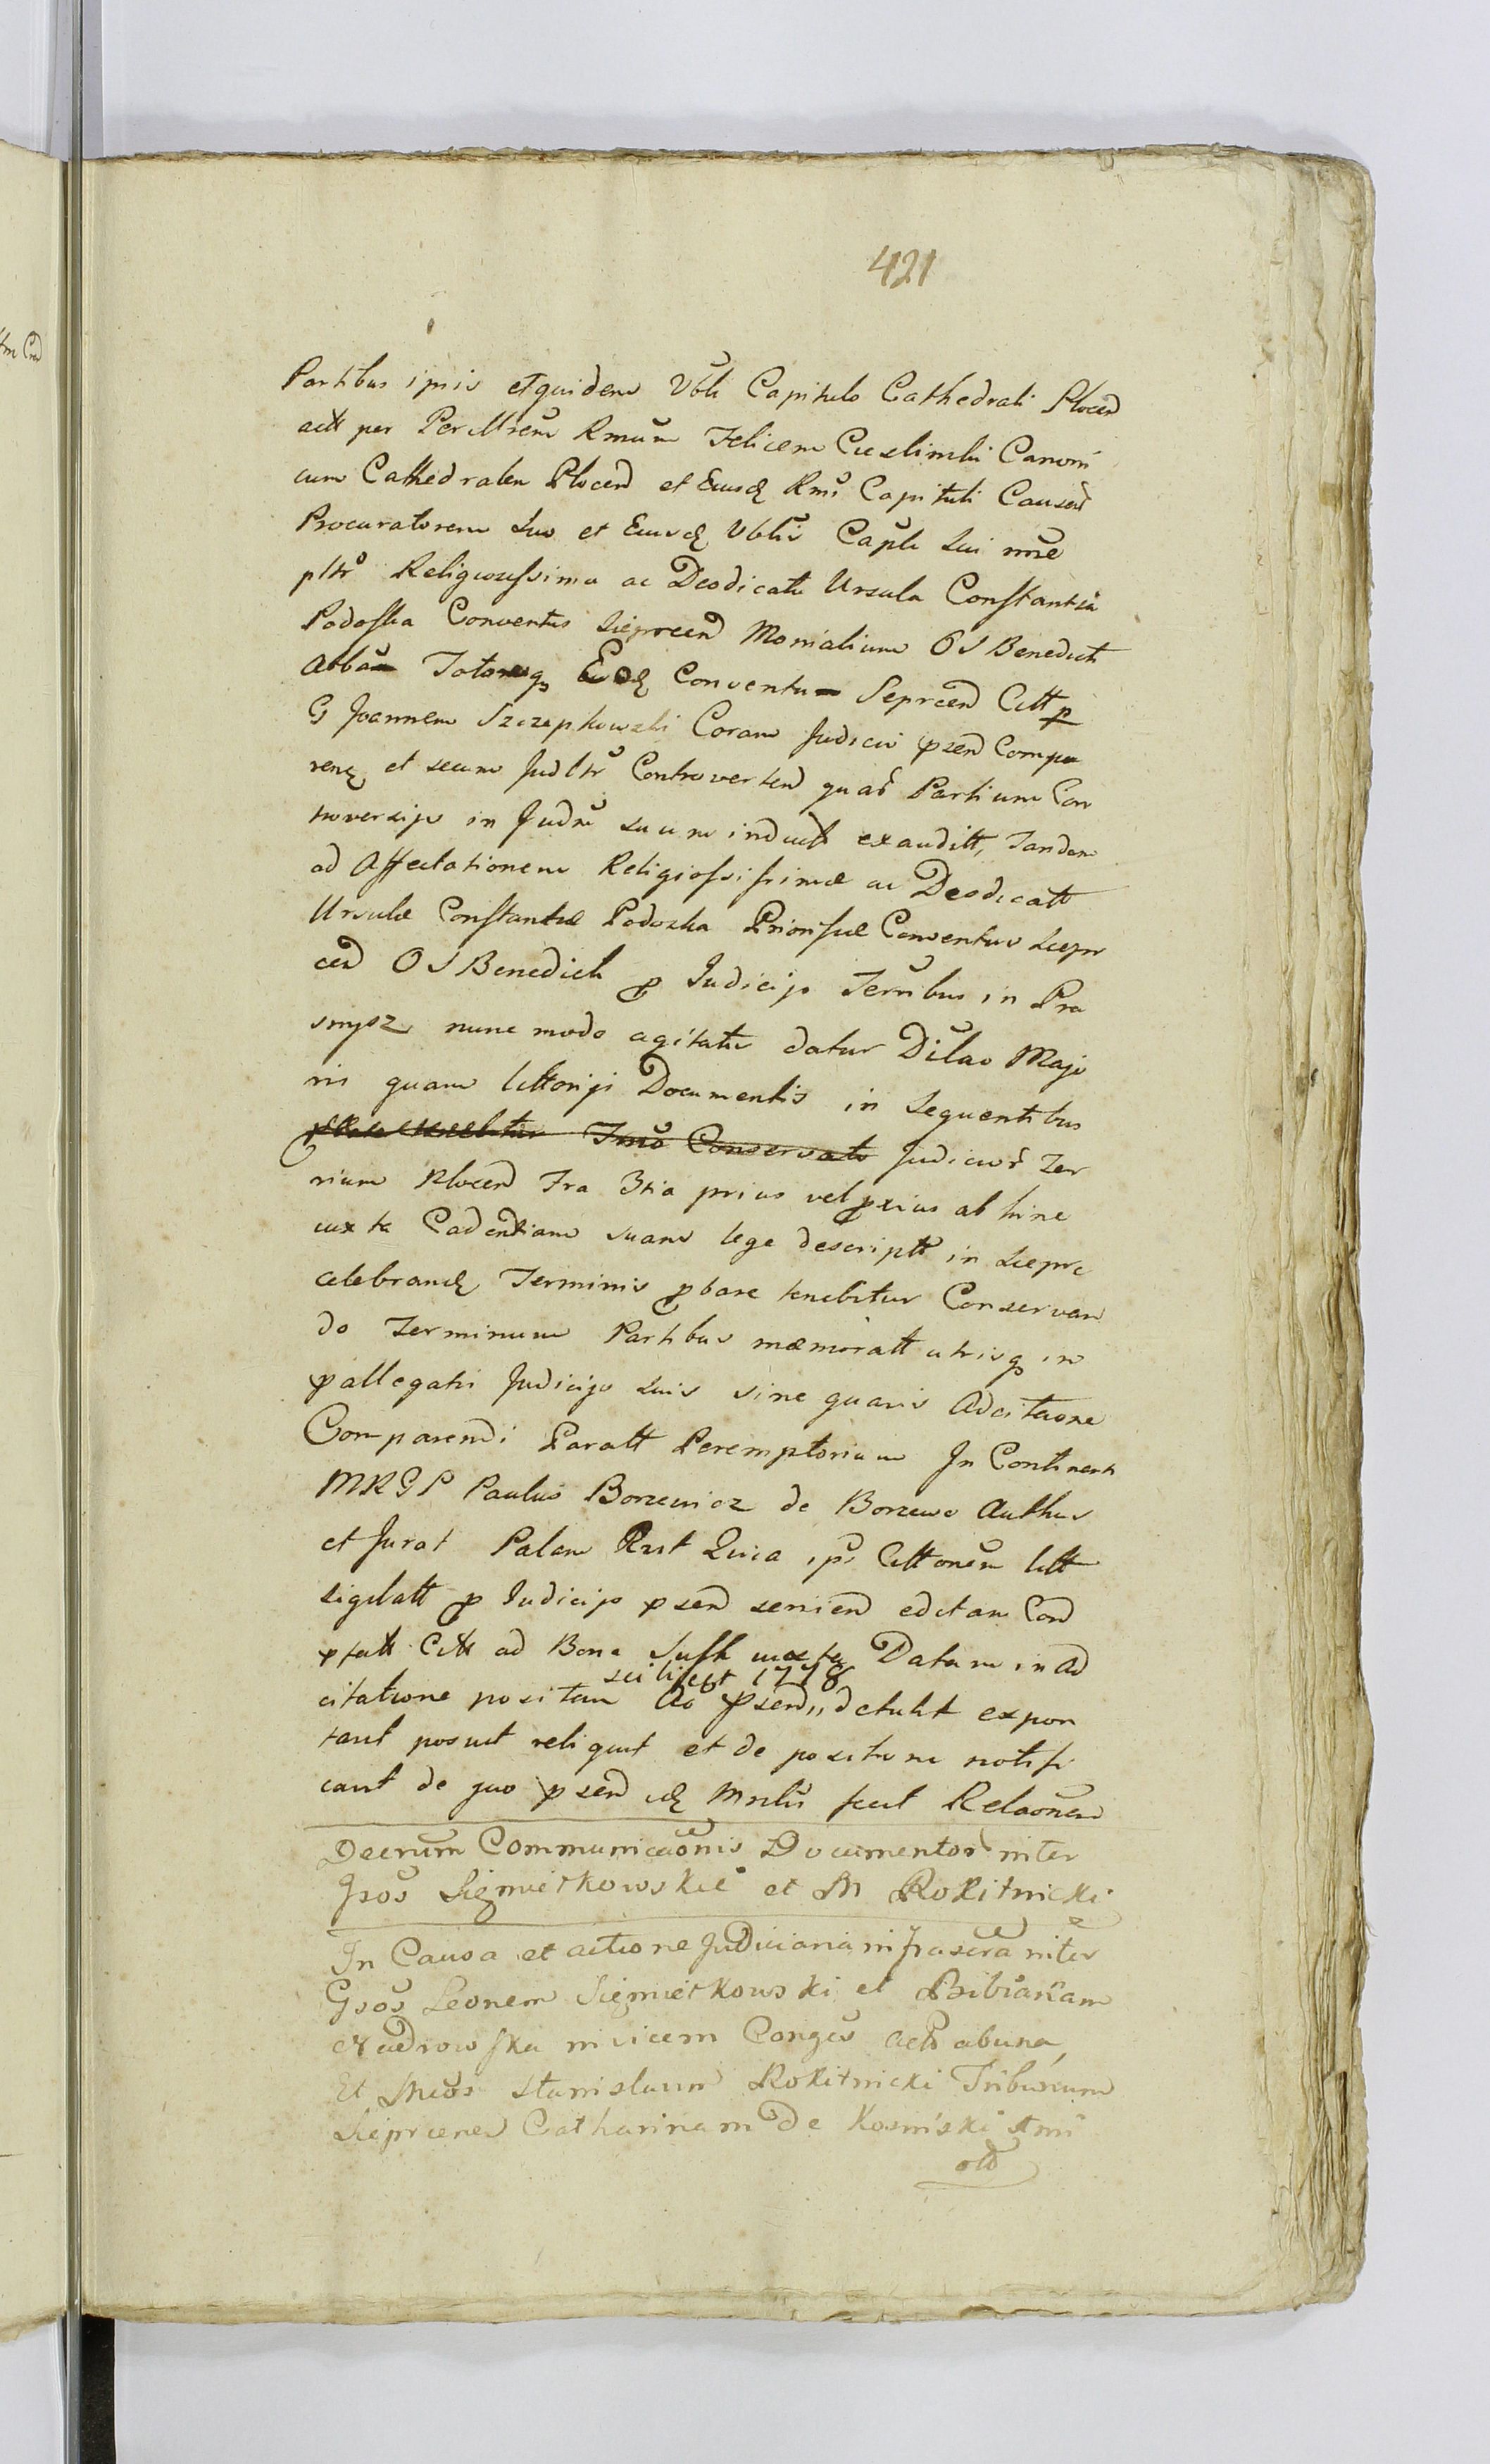 421
Partibus ipsis etquidem Vbli Capitulo Cathedrali Plocen
actt per Perillrem Rmum Felicem Cieslinski Canoni
cum Cathedralen Plocen et Eiusd Rmi Capituli Causar
Procuratorem Suo et Eiusd Vblis Capli Sui nnie
pltr Religiosissima ac Deodicata Ursula Constantia
Podoska Conventus Sieprcen Monialium O S Benedicti
Abba Totoq Eod Conventu Seprcen Citt p
G Joannem Szczepkowski Coram Judicio psen Compa
ren et secum Judltr Controverten quar Partium Con
troversijs in Judm suum induct exauditt, Tandem
ad Affectationem Religiosissimæ ac Deodicatt
Ursulæ Constantiæ Podoska Priorissæ Conventus Siepr
cen O S Benedicti p Judicijs Terribus in Pra
snysz nunc modo agitatis datur Dilao Majo
ris quam littorijs Documentis in Sequentibus
Conservato Judicior Ter
rium Plocen Fra 3tia prius vel pxius ab hinc
iuxta Cadentiam suam lege descriptt in Sieprc
celebrand Terminis pbare tenebitur Conservan
do Terminum Partibus mæmoratt utrisq in
pallegatis Judicijs Suis sine quavis Adcitaone
Comparendi Paratt Peremptorium In Continenti
MRGP Paulus Borzewicz de Borzewo Authus
et Jurat Palam Rect Quia ipse Cittonem litt
sigilatt p Judicijs psen servien editam Con
ptatt Citt ad Bona iuxta Datam in ad
scilicet 1778
citatione positam Ao psen detulit expor
tavit posuit reliquit et de positione notifi
cavit de quo psen id Mnlis fecit Relaonem
Decrum Communicaonis Documentor inter
Gsos Sigmietkowskie et M Rokitnicki
In Causa et actione Judiciaria infrascra inter
Gsos Leonem Siegmietkowski et Bibianam
Nadrowska invicem Conges act ab una,
Et Mcos Stanislaum Rokitnicki Tribunum
Sieprcenen Catharinam de Kosinski